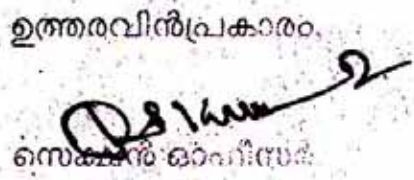 ഉത്തരവിൻപ്രകാരം,
സെക്ഷൻ ഓഫീസർ